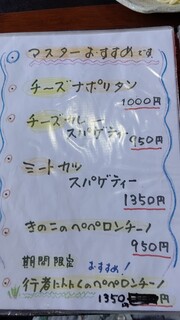 マスターおすすめです
チーズナポリタン
1000円
チーズカレー
スパゲティー
950円
ミートカツ
スパゲティー
1350円
きのこのペペロンチーノ
950円
期間限定
おすすめ!
行者にんにくのペペロンチーノ
1350円